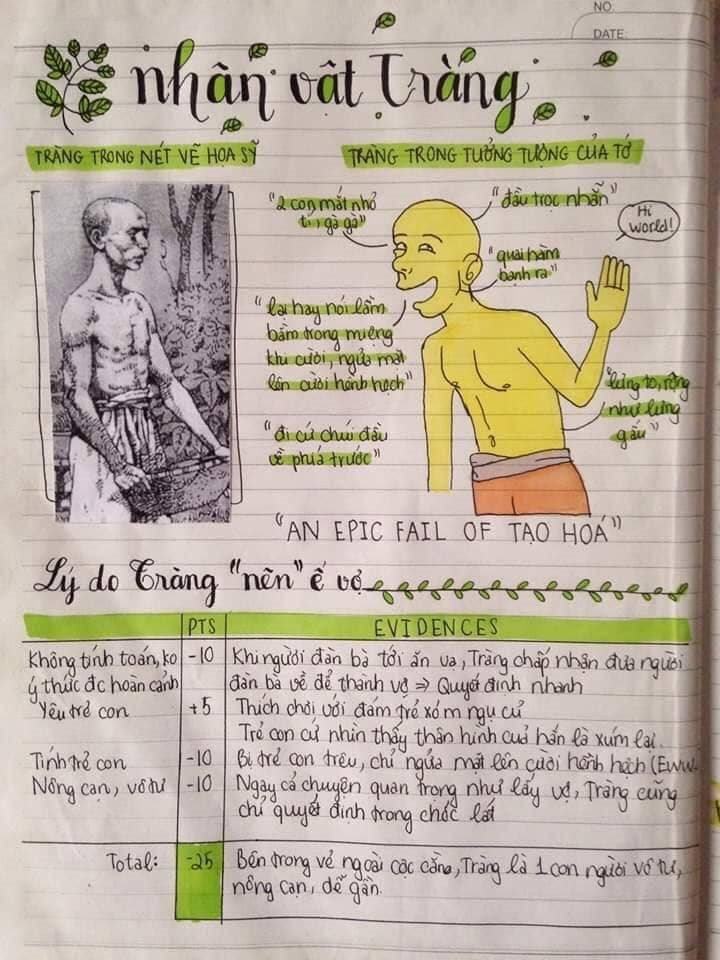 NO.
DATE:
nhân vật Tràng
TRÀNG TRONG NÉT VẼ HỌA SỸ
TRÀNG TRONG TƯỞNG TƯỢNG CỦA TỚ
"2 con mắt nhỏ
tí, gà gà"
"đầu trọc nhẵn"
Hi
World!
"quai hàm
bạnh ra"
"lại hay nói lầm
bầm trong miệng
khi cười, ngửa mặt
lên cười hềnh hệch"
"lưng to, rộng
như lưng
gấu"
"đi cứ chúi đầu
về phía trước"
"AN EPIC FAIL OF TẠO HOÁ"
Lý do Tràng "nên" ế vợ
PTS
EVIDENCES
Không tính toán, ko
ý thức đc hoàn cảnh
-10
Khi người đàn bà tới ăn vạ, Tràng chấp nhận đưa người
đàn bà về để thành vợ => Quyết định nhanh
Yêu trẻ con
+5
Thích chơi với đám trẻ xóm ngụ cư
Trẻ con cứ nhìn thấy thân hình của hắn là xúm lại.
Tính trẻ con
-10
Bị trẻ con trêu, chỉ ngửa mặt lên cười hềnh hệch (Eww
Nông cạn, vô tư
-10
Ngay cả chuyện quan trọng như lấy vợ, Tràng cũng
chỉ quyết định trong chốc lát
Total:
-25
Bên trong vẻ ngoài cục cằn, Tràng là 1 con người vô tư,
nông cạn, dễ gần.